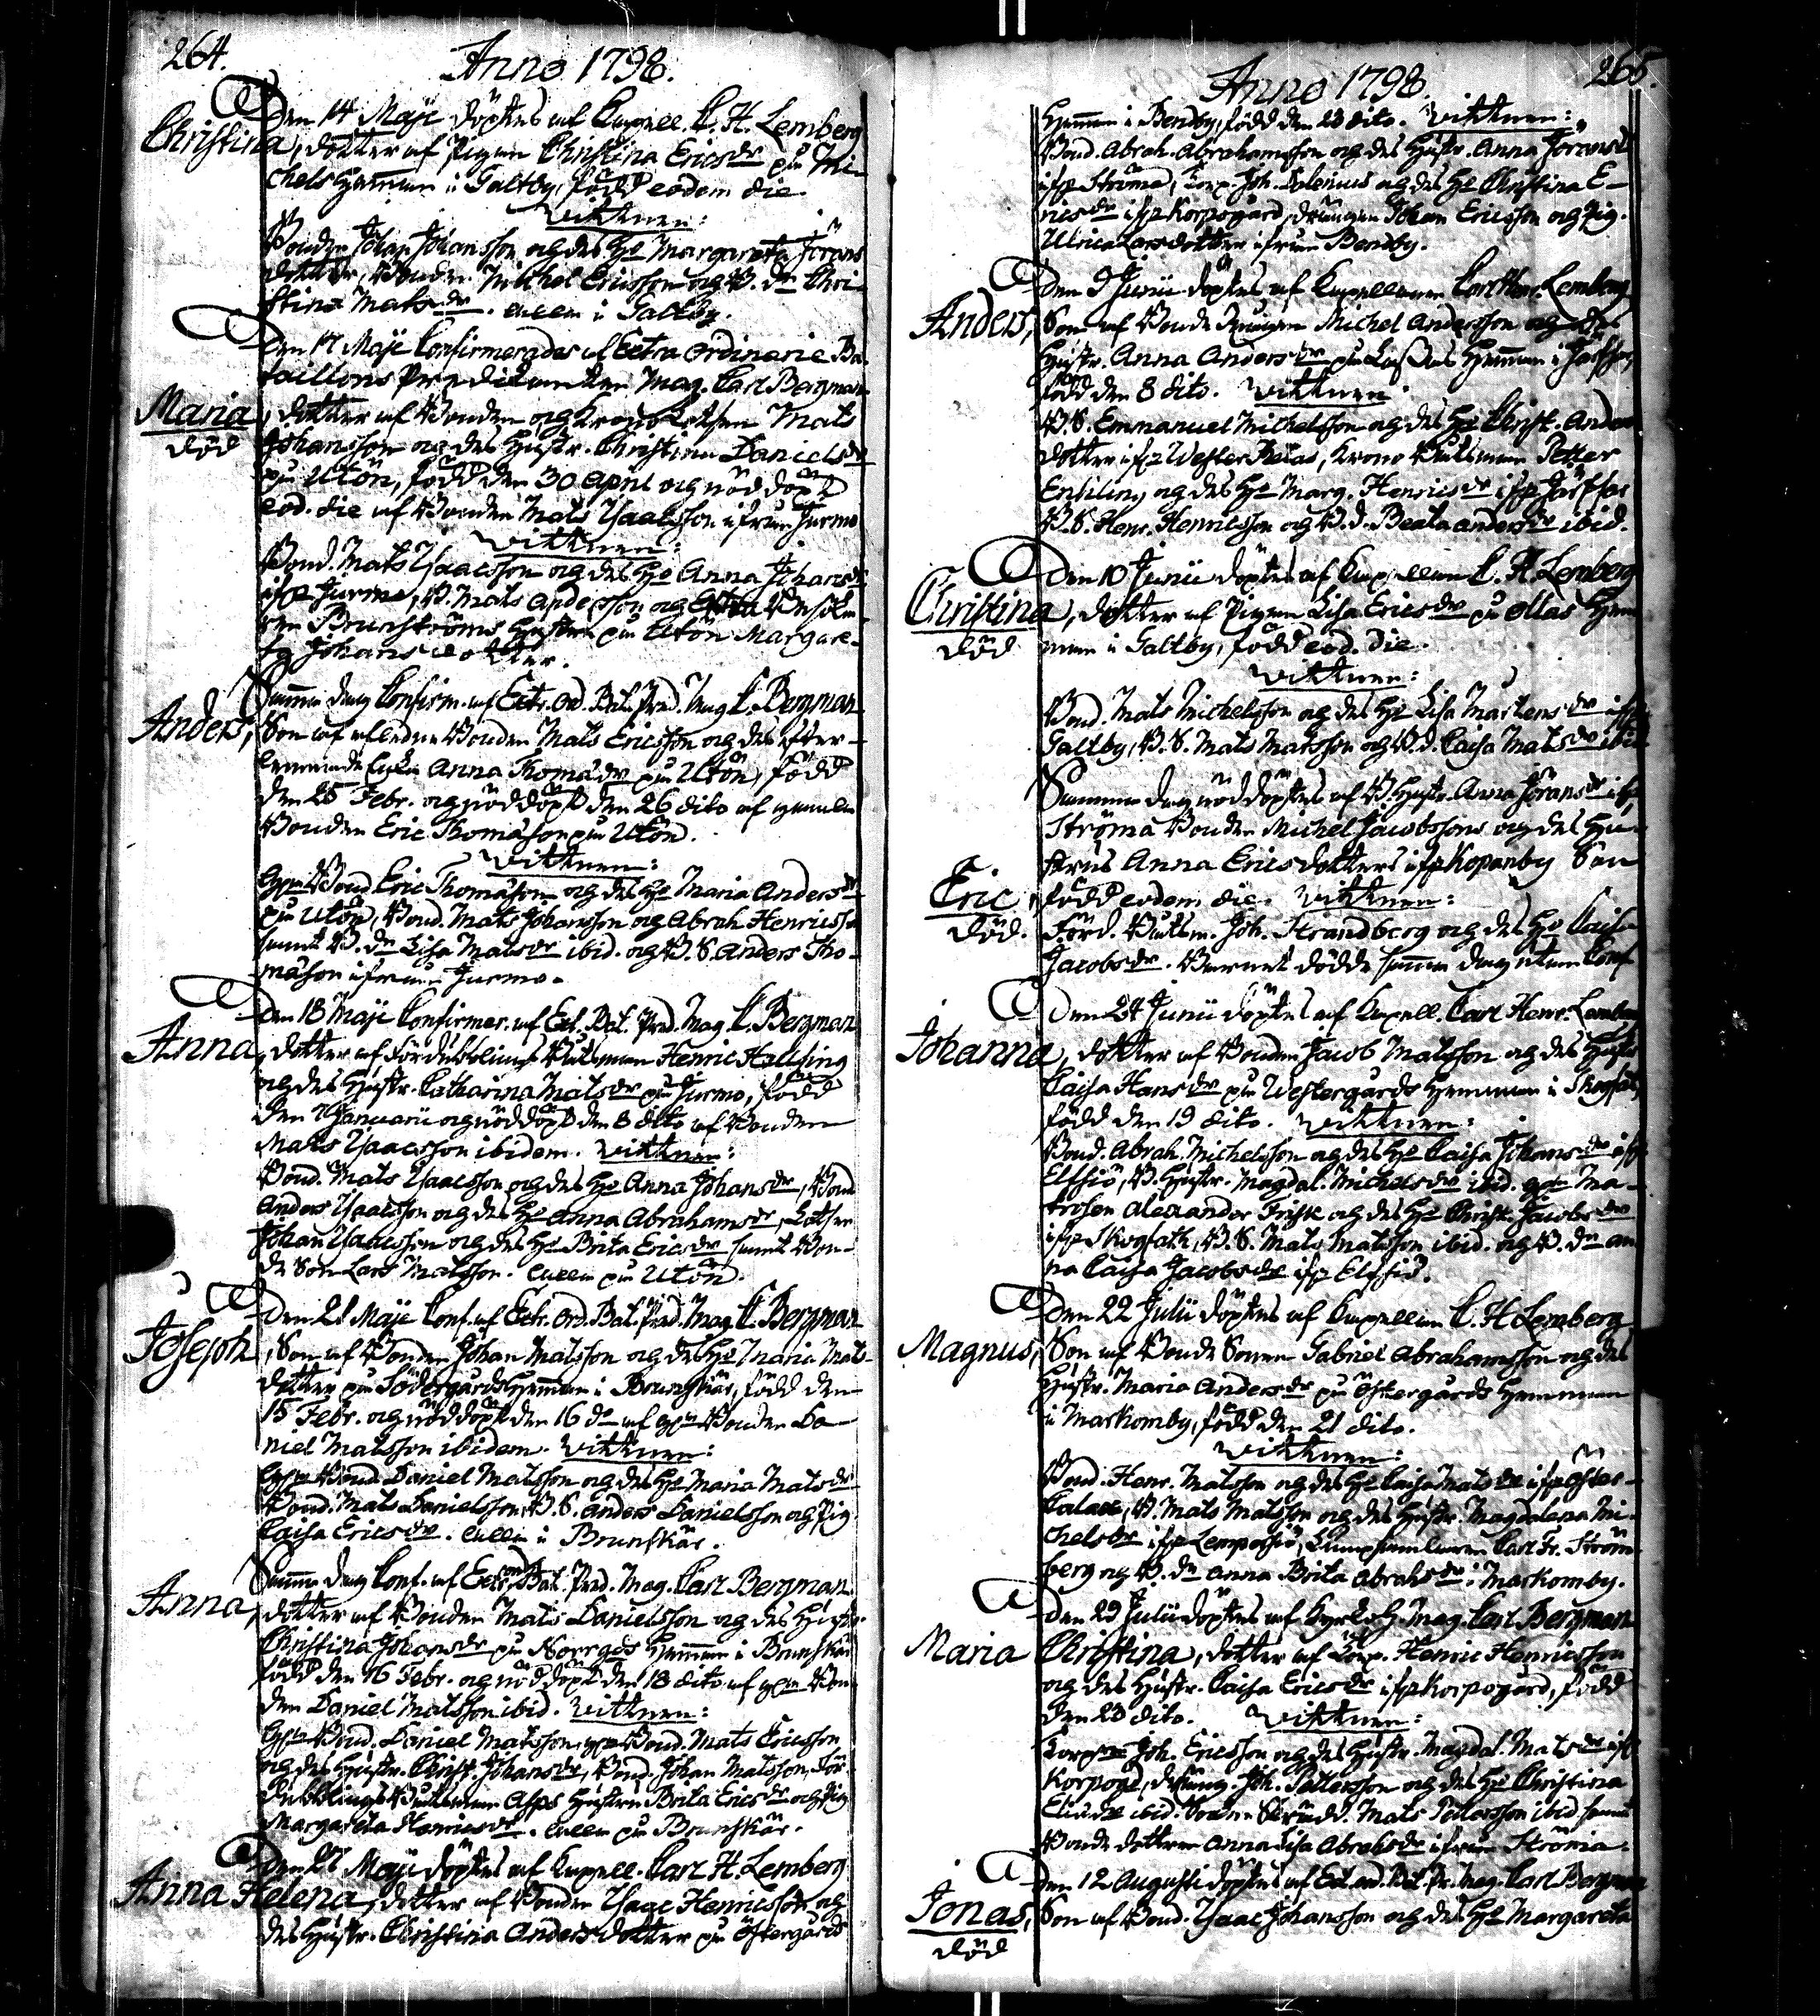 264.
Anno 1798.
Den 14 Maje döptes af Capell. C. H. Lemberg
Christina, dotter af Pigan Christina Ericsdr på Mi-
chels Hemman i Galtby, född eodem die.
Vittnen:
Bonden Johan Johansson och des Ho Margareta Jörans
dotter, Bonden Michel Ericsson och B. dn Chri-
stina Matsdr. alla i Galtby.
Den 17 Maje Confirmerades af Extra Ordinarie Ba-
taillons Predikanten Mag. Carl Bergman
Maria, dotter af Bonden och Krono Lotsen Mats
död
Johansson och des Hustr. Christina Danielsdr
på Utön, född den 30 April och nöddöpt
eod. die af Bonden Mats Isaacsson ifrån Jurmo
Vittnen:
Bond. Mats Isaacsson och des Ho Anna Johansdr
ifr Jurmo, B. Mats Andersson och
Brunströms Hustru på Utön Margare-
ta Johansdotter.
Samma dag Confirm. af Extr. Ord. Bat. Pred. Mag C. Bergman
Anders, Son af aflednne Bonden Mats Ericsson och des efter-
lemnade Enka Anna Thomædr på Utön, född
den 25 Febr. och nöddöpt den 26 dito af gamla
Bonden Eric Thomasson på Utön.
Vittnen:
Bond Eric Thomasson och des Ho Maria Andersdr
på Utön, Bond. Mats Johansson och Abrah Henricsson
samt B. dn Lisa Matsdr ibid. och B. S. Anders Tho-
masson ifrån Jurmo.
Den 18 Maje Confirmer. af Ext. Bat. Pred. Mag. C. Bergman
Anna, dotter af Fördubblings Båtsman Henric Hellsing
och des Hustr. Catharina Matsdr på Jurmo, född
den 7 Januarii och nöddöpt den 8 dito af Bonden
Mats Isaacsson ibidem. Vittnen:
Bond. Mats Isaacsson och des Ho Anna Johansdr, Bond
Anders Isaacsson och des Ho Anna Abrahamsdr, Lotsen
Johan Isaacsson och des Ho Brita Ericsdr samt Bon-
de Son Lars Matsson. alla på Utön.
Den 21 Maje Conf. af Extr. Ord. Bat. Pred. Mag C. Bergman
Joseph, Son af Bonden Johan Matsson och des Ho Maria Mats-
dotter på Södergårds Hemman i Brunskär, född den
15 Febr. och nöddöpt den 16 do af Bonden Da-
niel Matsson ibidem. Vittnen:
Bond Daniel Matsson och des Ho Maria Matsdr
Bond. Mats Danielsson, B. S. Anders Danielsson och Pig.
Caisa Ericsdr. alla i Brunskär.
Samma dag Conf. af Extr. ord. Bat. Pred. Mag. Carl Bergman
Anna, dotter af Bonden Mats Danielsson och des Hustr.
Christina Johansdr på Norrgds Hemman i Brunskär
född den 16 Febr. och nöddöpt den 18 dito af Bon-
den Daniel Matsson ibid. Vittnen:
Bond. Daniel Matsson, Bond. Mats Ericsson
och des Hustr. Christ. Johansdr, Bond. Johan Matsson, För-
dubblings Båtsman Asps Hustru Brita Ericsdr och Pig
Margareta Henricsdr. alla på Brunskär.
Den 27 Maje döptes af Capell. Carl H. Lemberg
Anna Helena, dotter af Bonden Isaac Henricsson och
des Hustr. Christina Andersdotter på Östergårds
265.
Anno 1798.
Hemman i Benby, född den 23 dito. Vittnen:
Bond. Abrah. Abrahamsson och des Hustr. Anna Jöransdr
ifr Ströma, Korp. Joh. Salenius och des Ho Christina E-
ricsdr ifr Korpogård, drängen Johan Ericsson och Pig.
Ulrica Larsdotter ifrån Benby.
Den 9 Junii döptes af Capellanen Carl Henr. Lemberg
Anders, Son af Bonde Drängen Michel Andersson och des
Hustr. Anna Andersdr på Lassas Hemman i Järfsor,
född den 8 dito. Vittnen
B. S. Emmanuel Michelsson och des Ho Christ. Anders
dotter ifr Wester Retas, Krono Båtsman Petter
Enbiling och des Ho Marg. Henricsdr ifr Järfsor
B. S. Henr. Henricsson och B. d. Beata Andersdr ibid.
Den 10 Junii döptes af Capellan C. H. Lemberg
Christina, dotter af Pigan Lisa Ericsdr på Ollas Hem-
död
man i Galtby, född eod. die.
Vittnen:
Bond. Mats Michelsson och des Ho Lisa Mårtensdr ifr
Galtby, B. S. Mats Matsson och B. d. Caisa Matsdr ibid
Samma dag nöddöptes af B. Hustr. Anna Jöransdr ifr
Ströma Bonden Michel Jacobssons och des Hu-
strus Anna Ericsdotters ifr Kopanby Son
Eric, född eodem die. Vittnen:
död.
Förd. Båtsm. Joh. Strandberg och des Ho Caisa
Jacobsdr. Barnet dödde samma dag utan Conf.
Den 24 Junii döptes af Capell. Carl Henr. Lemberg
Johanna, dotter af Bonden Jacob Matsson och des Hustr
Caisa Hansdr på Westergårds Hemman i Skogfat,
född den 19 dito. Vittnen:
Bond. Abrah. Michelsson och des Ho Caisa Johansdr ifr
Elfsiö, B. Hustr. Magdal. Michelsdr ibid. Ma-
trosen Alexander Frisk och des Ho Christ. Jacobsdr
ifr Skogfath, B. S. Mats Matsson ibid. och B. dn An-
na Caisa Jacobsdr ifr Elfsiö.
Den 22 Julii döptes af Capellan C. H. Lemberg
Magnus, Son af Bonde Sonen Gabriel Abrahamsson och des
Hustr. Maria Andersdr på Östergårds Hemman
i Markomby, född den 21 dito.
Vittnen:
Bond. Henr. Matsson och des Ho Caisa Matsdr ifr Öster-
Calax, B. Mats Matsson och des Hustr. Magdalena Mi-
chelsdr ifr Lempersiö, Carl Fr. Ström-
berg och B. dn Anna Brita Abrahsdr i Markomby.
Den 29 Julii döptes af Kyrkoh. Mag. Carl Bergman
Maria Christina, dotter af Korp. Henric Henricsson
och des Hustr. Caisa Ericsdr ifr Korpogård, född
den 23 dito. Vittnen:
Korp Joh. Ericsson och des Hustr. Magdal. Matsdr ifr
Korpogd, dräng. Joh. Pettersson och des Ho Christina
ibid. Mats Pettersson ibid. samt
Bonde dottren Anna Lisa Abrahsdr ifrån Ströma.
Den 12 Augusti döptes af Ext. ord. Bat. Pr. Mag. Carl Bergman
Jonas, Son af Bond. Isaac Johansson och des Ho Margareta
död